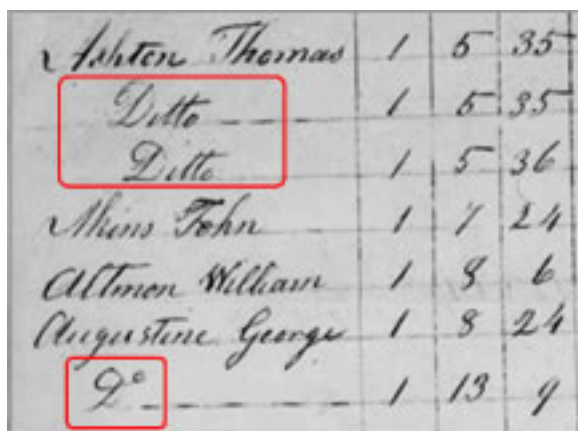 Ashton Thomas 1 5 35
Ditto 1 5 35
Ditto 1 5 36
Akins John 1 7 24
Altmon William 1 8 6
Augustine George 1 8 24
Do 1 13 9